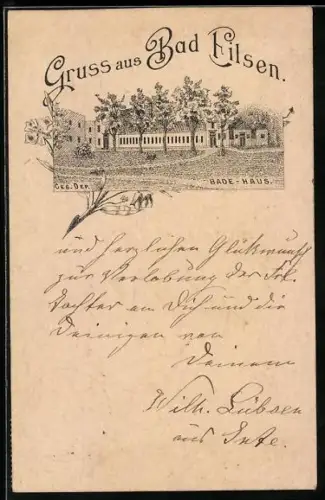 Gruss aus Bad Eilsen.
GES. DEP.
BADE-HAUS.
und herzlichen Glückwunsch
zur Verlobung der Frl.
Tochter an Dich und die
Deinigen von
Deinem
Wilh. Lübsen
aus